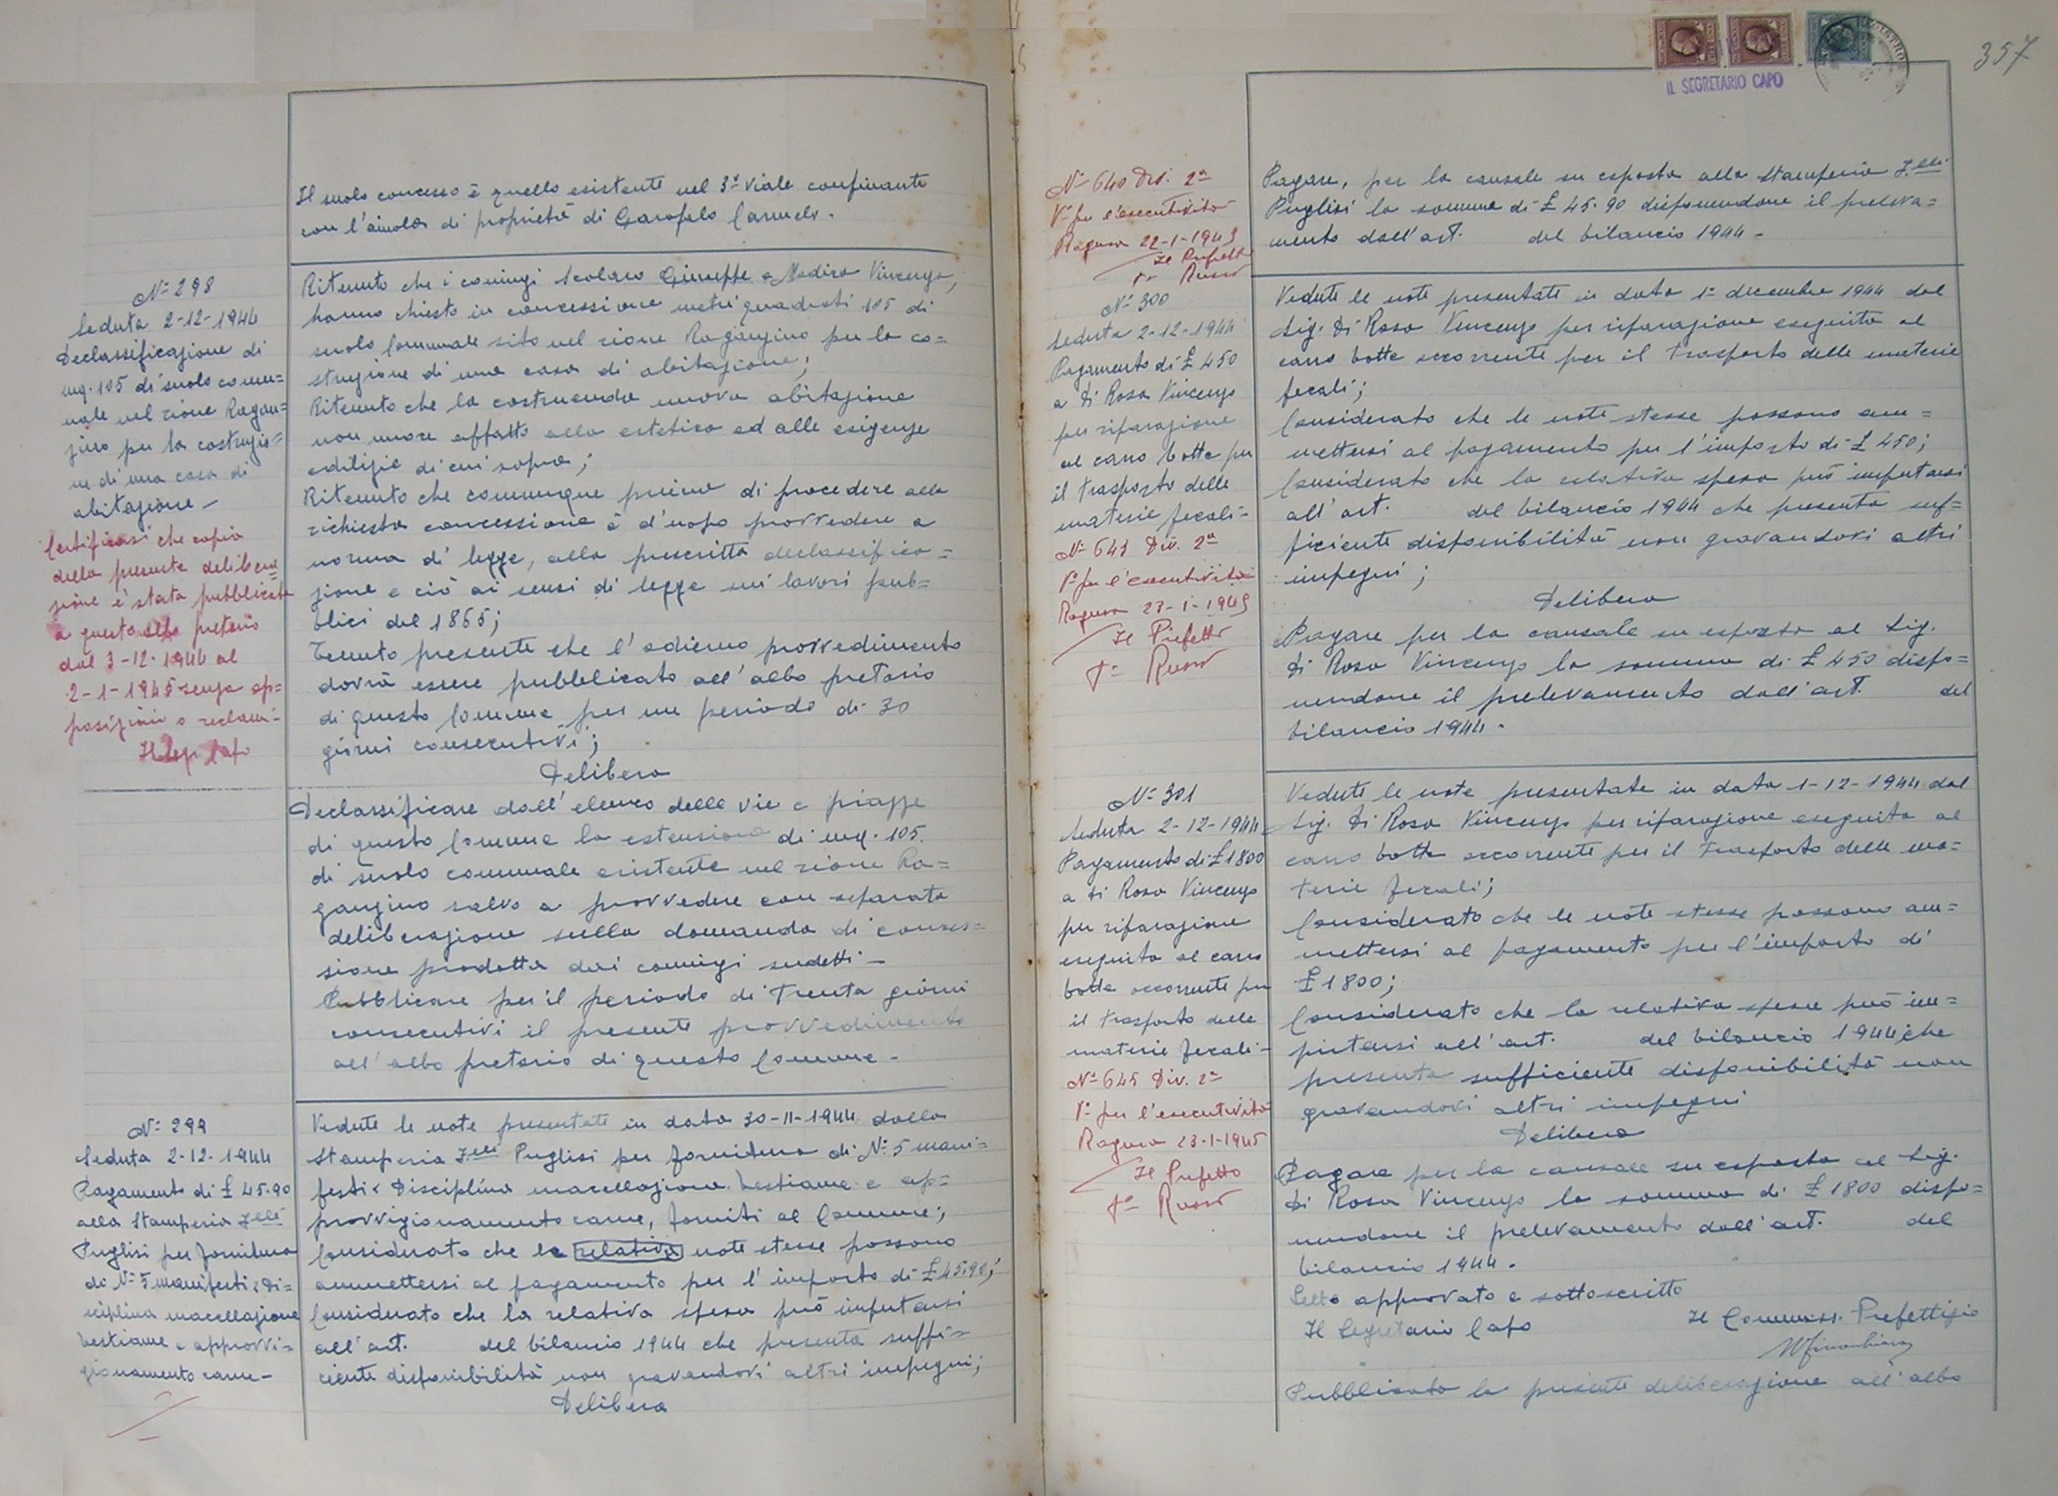 Il suolo concesso è quello esistente nel 3° viale confinante
con l'aiuola di proprietà di Garofalo Carmelo.
N° 298
Seduta 2-12-1944
Declassificazione di
mq. 105 di suolo comu=
nale nel rione Ragan=
zino per la costruzio=
ne di una casa di
abitazione -
Certificasi che copia
della presente delibera
zione è stata pubblicata
a questo albo pretorio
dal 3-12-1944 al
2-1-1945 senza op=
posizioni o reclami -
Il Segr. Capo
Ritenuto che i coniugi Scolaro Giuseppe e Modica Vincenza,
hanno chiesto in concessione metri quadrati 105 di
suolo Comunale sito nel rione Raganzino per la co=
struzione di una casa di abitazione;
Ritenuto che la costruenda nuova abitazione
non nuoce affatto alla estetica ed alle esigenze
edilizie di cui sopra;
Ritenuto che comunque prima di procedere alla
richiesta concessione è d'uopo provvedere a
norma di legge, alla prescritta declassifica=
zione e ciò ai sensi di legge sui lavori pub=
blici del 1865;
Tenuto presente che l'odierno provvedimento
dovrà essere pubblicato all'albo pretorio
di questo Comune per un periodo di 30
giorni consecutivi;
Delibera
Declassificare dall'elenco delle vie e piazze
di questo Comune la estensione di mq. 105
di suolo comunale esistente nel rione Ra=
ganzino salvo a provvedere con separata
deliberazione sulla domanda di conces=
sione prodotta dai coniugi sudetti -
Pubblicare per il periodo di Trenta giorni
consecutivi il presente provvedimento
all'albo pretorio di questo Comune -
N° 299
Seduta 2-12-1944
Pagamento di £ 45.90
alla Stamperia F.lli
Puglisi per fornitura
di N° 5 manifesti: Di=
sciplina macellazione
bestiame e approvvi=
gionamento carne -
Vedute le note presentate in data 30-11-1944 dalla
Stamperia F.lli Puglisi per fornitura di N° 5 mani=
festi: Disciplina macellazione bestiame e ap=
provvigionamento carne, forniti al Comune;
Considerato che le relativa note stesse possono
ammettersi al pagamento per l'importo di £ 45.90;
Considerato che la relativa spesa può imputarsi
all'art. del bilancio 1944 che presenta suffi=
ciente disponibilità non gravandovi altri impegni;
Delibera
357
IL SEGRETARIO CAPO
N° 640 Div. 2ª
V° per l'esecutività
Ragusa 22-1-1945
Il Prefetto
Fto Russo
Pagare, per la causale su esposta alla Stamperia F.lli
Puglisi la somma di £ 45.90 disponendone il preleva=
mento dall'art. del bilancio 1944 -
N° 300
Seduta 2-12-1944
Pagamento di £ 450
a Di Rosa Vincenzo
per riparazione
al carro botte per
il trasporto delle
materie fecali -
N° 643 Div. 2ª
V° per l'esecutività
Ragusa 23-1-1945
Il Prefetto
Fto Russo
Vedute le note presentate in data 1° dicembre 1944 dal
Sig. Di Rosa Vincenzo per riparazione eseguita al
carro botte occorrente per il trasporto delle materie
fecali;
Considerato che le note stesse possono am=
mettersi al pagamento per l'importo di £ 450;
Considerato che la relativa spesa può imputarsi
all'art. del bilancio 1944 che presenta suf=
ficiente disponibilità non gravandovi altri
impegni;
Delibera
Pagare per la causale su esposta al Sig.
Di Rosa Vincenzo la somma di £ 450 dispo=
nendone il prelevamento dall'art. del
bilancio 1944 -
N° 301
Seduta 2-12-1944
Pagamento di £ 1800
a Di Rosa Vincenzo
per riparazione
eseguita al carro
botte occorrente per
il trasporto delle
materie fecali -
N° 645 Div. 2ª
V° per l'esecutività
Ragusa 23-1-1945
Il Prefetto
Fto Russo
Vedute le note presentate in data 1-12-1944 dal
Sig. Di Rosa Vincenzo per riparazione eseguita al
carro botte occorrente per il trasporto delle ma=
terie fecali;
Considerato che le note stesse possono am=
mettersi al pagamento per l'importo di
£ 1800;
Considerato che la relativa spesa può im=
putarsi all'art. del bilancio 1944 che
presenta sufficiente disponibilità non
gravandovi altri impegni
Delibera
Pagare per la causale su esposta al Sig.
Di Rosa Vincenzo la somma di £ 1800 dispo=
nendone il prelevamento dall'art. del
bilancio 1944 -
Letto approvato e sottoscritto
Il Segretario Capo
Il Commiss. Prefettizio
Pubblicata la presente deliberazione all'albo